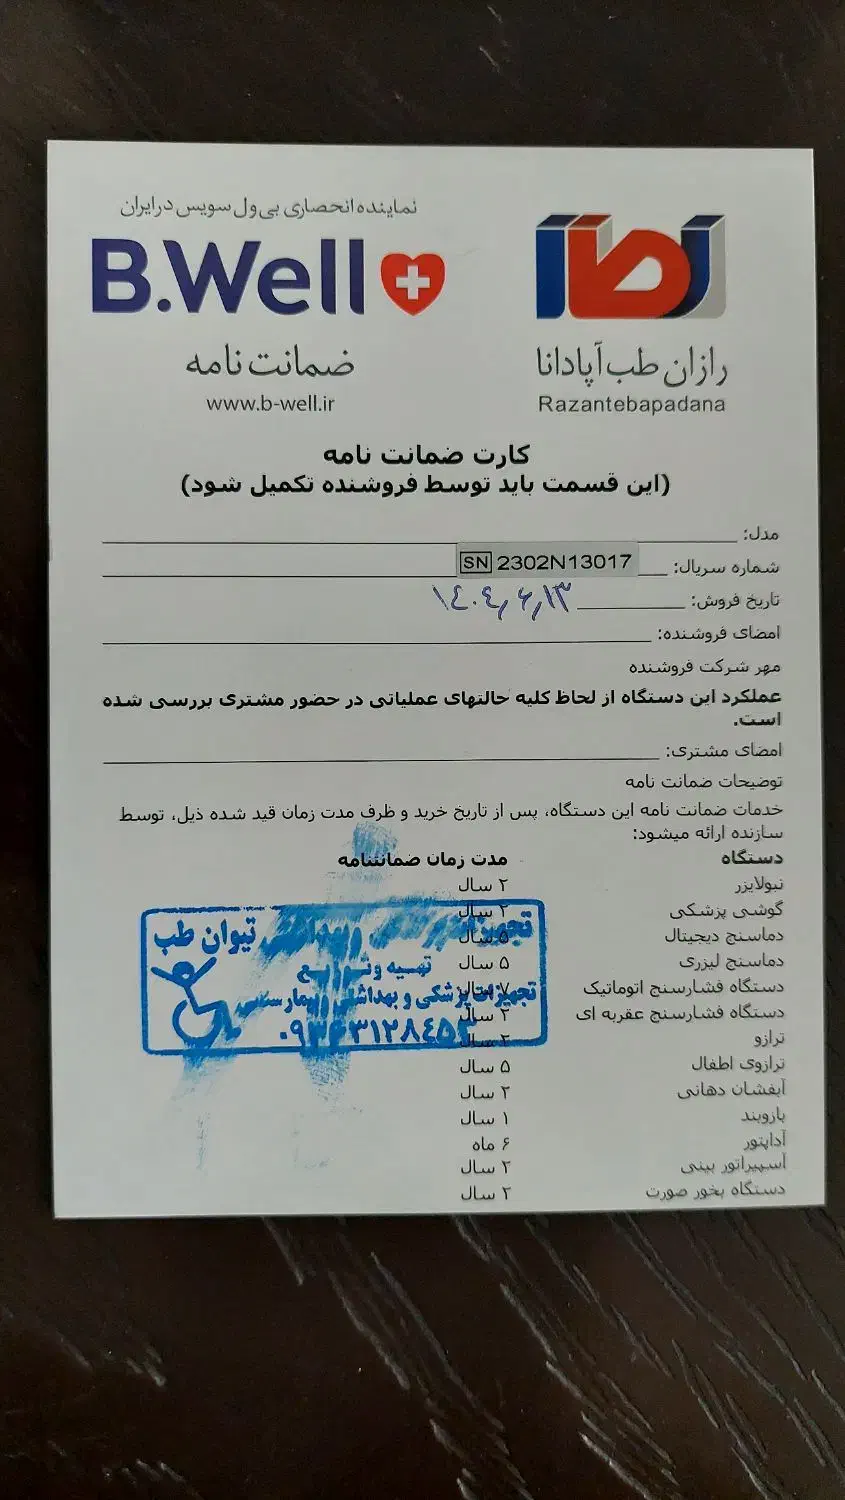 نماینده انحصاری بی‌ول سویس در ایران
B.Well
ضمانت نامه
www.b-well.ir
رازان طب آپادانا
Razantebapadana
کارت ضمانت نامه
(این قسمت باید توسط فروشنده تکمیل شود)
مدل:
شماره سریال: SN 2302N13017
تاریخ فروش: ۱۴۰۴٫۶٫۱۳
امضای فروشنده:
مهر شرکت فروشنده
عملکرد این دستگاه از لحاظ کلیه حالتهای عملیاتی در حضور مشتری بررسی شده
است.
امضای مشتری:
توضیحات ضمانت نامه
خدمات ضمانت نامه این دستگاه، پس از تاریخ خرید و ظرف مدت زمان قید شده ذیل، توسط
سازنده ارائه میشود:
دستگاه مدت زمان ضمانتنامه
نبولایزر ۲ سال
گوشی پزشکی ۲ سال
دماسنج دیجیتال ۵ سال
دماسنج لیزری ۵ سال
دستگاه فشارسنج اتوماتیک ۷ سال
دستگاه فشارسنج عقربه ای ۲ سال
ترازو ۲ سال
ترازوی اطفال ۵ سال
آبفشان دهانی ۲ سال
بازوبند ۱ سال
آداپتور ۶ ماه
آسپیراتور بینی ۲ سال
دستگاه بخور صورت ۲ سال
تیوان طب
تهیه و توزیع
تجهیزات پزشکی و بهداشتی و بیمارستانی